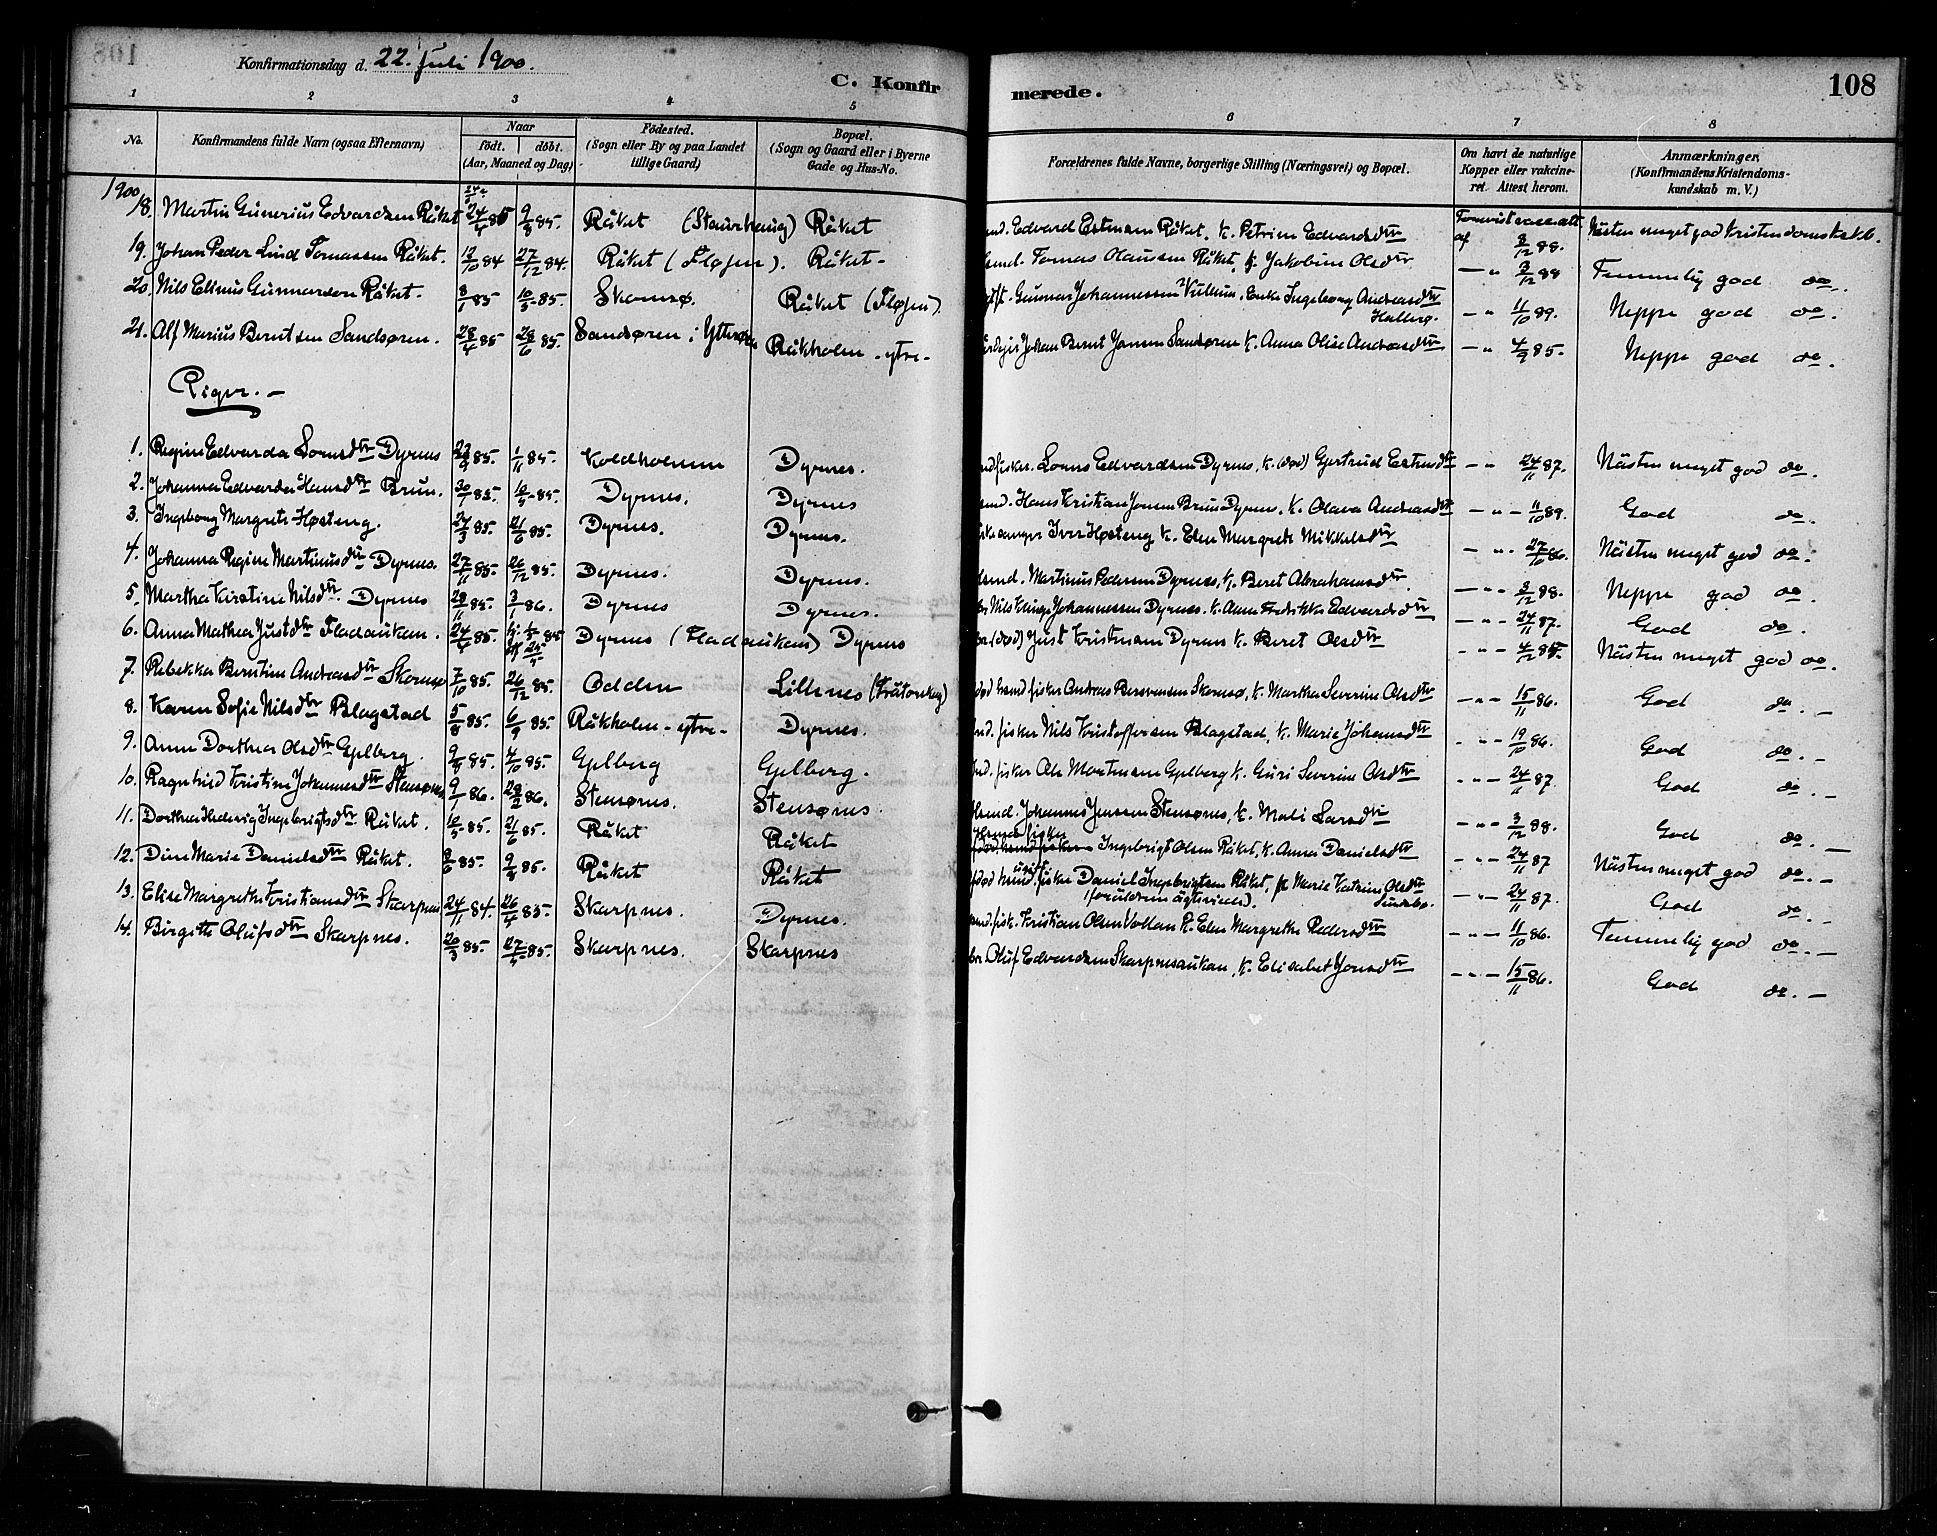 Konfirmationsdag d. 22. Juli 1900.
C. Konfirmerede.
108
1 2 3 4 5 6 7 8
No.
Konfirmandens fulde Navn (ogsaa Efternavn)
Naar
födt. döbt.
(Aar, Maaned og Dag)
Födested.
(Sogn eller By og paa Landet
tillige Gaard)
Bopæl.
(Sogn og Gaard eller i Byerne
Gade og Hus-No.
Forældrenes fulde Navne, borgerlige Stilling (Næringsvei) og Bopæl.
Om havt de naturlige
Kopper eller vakcine-
ret. Attest herom.
Anmærkninger.
(Konfirmandens Kristendoms-
kundskab m. V.)
1900
18. Martin Gunerius Edvardsen Råket 24/4 85 9/8 85. Råket (Staurhaug) Råket Edvard Estmann Råket. K. Petrine Edvardsdtr af 3/12 88. Nästen meget god Kristendomskskb.
19. Johan Peder Lind Tomassen Råket. 12/10 84 27/12 84. Råket (Fløjen). Råket- Tomas Olaussen Råket, K. Jakobine Olsdtr — " 3/12 88 Temmelig god do.
20. Nils Elenus Gunnarsen Råket. 8/1 85 10/5 85. Skomsø. Råket (Fløjen). Gunnar Johannessen Vullum, Enke Ingeborg Andreasdtr
Hallerø. — " 11/10 89. Neppe god do.
21. Alf Marius Berntsen Sandsøren. 28/4 85 28/6 85. Sandsøren i Ytterøen Råkholm - ytre- Johan Bernt Jonsen Sandsøren K. Anna Olise Andreasdtr — " 4/9 85. Neppe god do.
Piger. —
1. Regine Edvarda Lornsdtr Dyrnes 22/9 85. 1/11 85. Koldholmen Dyrnes. Lorns Edvardsen Dyrnes, K. (død) Gjertrud Estensdtr — " 24/11 87. Nästen meget god do.
2. Johanna Edvarda Hansdtr Brun. 30/1 85. 10/5 85. Dyrnes. Dyrnes Hans Kristian Jonsen Brun Dyrnes. K. Olava Andreasdtr — " — 11/10 89. God do.
3. Ingeborg Margrete Høsteng. 24/3 85. 21/6 85. Dyrnes. Dyrnes. Kirkesanger Iver Høsteng K. Elen Margrete Mikkelsdtr — " 27/10 86. Nästen meget god do.
4. Johanna Regine Martinusdtr Dyrnes. 27/11 85. 26/12 85. Dyrnes. Dyrnes. Martinus Pedersen Dyrnes, K. Beret Abrahamsdtr. — " — 3/12 88. Neppe god do.
5. Martha Kirstine Nilsdtr. Dyrnes 28/11 85. 3/1 86. Dyrnes Dyrnes. Nils Klinge Johannessen Dyrnes. K. Anne Fredrikke Edvardsdtr — " — 24/11 87. God do.
6. Anna Mathea Justdtr Fladaukan. 24/4 85. Dyrnes (Fladaukan) Dyrnes (død) Just Kristmann Dyrnes K. Beret Olsdtr - " - 4/12 85. Nästen meget god do.
7. Rebekka Berntine Andreasdtr Skomsø 7/10 85. 26/12 85. Odden Lillenes død husmd fisker Andreas Berevensen Skomsø, K. Martha Severine Olsdtr — " — 15/11 86. God do. —
8. Karen Sofie Nilsdtr Blagstad 5/8 85. 6/9 85. Råkholm - ytre- Dyrnes. fisker Nils Kristoffersen Blagstad, K. Marie Johansdtr - " — 19/10 86. God do. —
9. Anne Dorthea Olsdtr Gjelberg. 9/8 85. 4/10 85. Gjelberg Gjelberg. fisker Ole Mortmann Gjelberg K. Guri Severine Olsdtr - " — 24/11 87. God do. —
10. Ragnhild Kristine Johannesdtr Stensønes 9/1 86. 28/2 86. Stensønes. Stensønes Johannes Jenssen Stensønes, K. Mali Larsdtr — " — 3/12 88. God do. —
11. Dorthea Hedevig Ingebrigtsdtr. Råket. 10/5 85. 21/6 85. Råket Råket Ingebrigt Olsen Råket, K. Anna Danielsdtr - " — 24/11 87 Nästen meget god do. —
12. Dina Marie Danielsdtr Råket. 8/6 85. 9/8 85. Råket Råket død husmd. fisker Daniel Ingebrigtsen Råket, p. Marie Katrine Olsdtr
(forældrene ägteviede). Sundsbø. — " — 24/11 87. God do. —
13. Elise Margrethe Kristiansdtr Skarpnes 24/11 84. 26/4 85. Skarpnes. Dyrnes. fisk. Kristian Olsen Vollan K. Elen Margrethe Pedersdtr — " — 11/10 86. Temmelig god do. —
14. Birgitte Olufsdtr Skarpnes. 20/3 85. 27/4 85. Skarpnes. Skarpnes Oluf Edvardsen Skarpnesaukan, K. Elisabet Jonsdtr — " — 15/11 86. God do. —